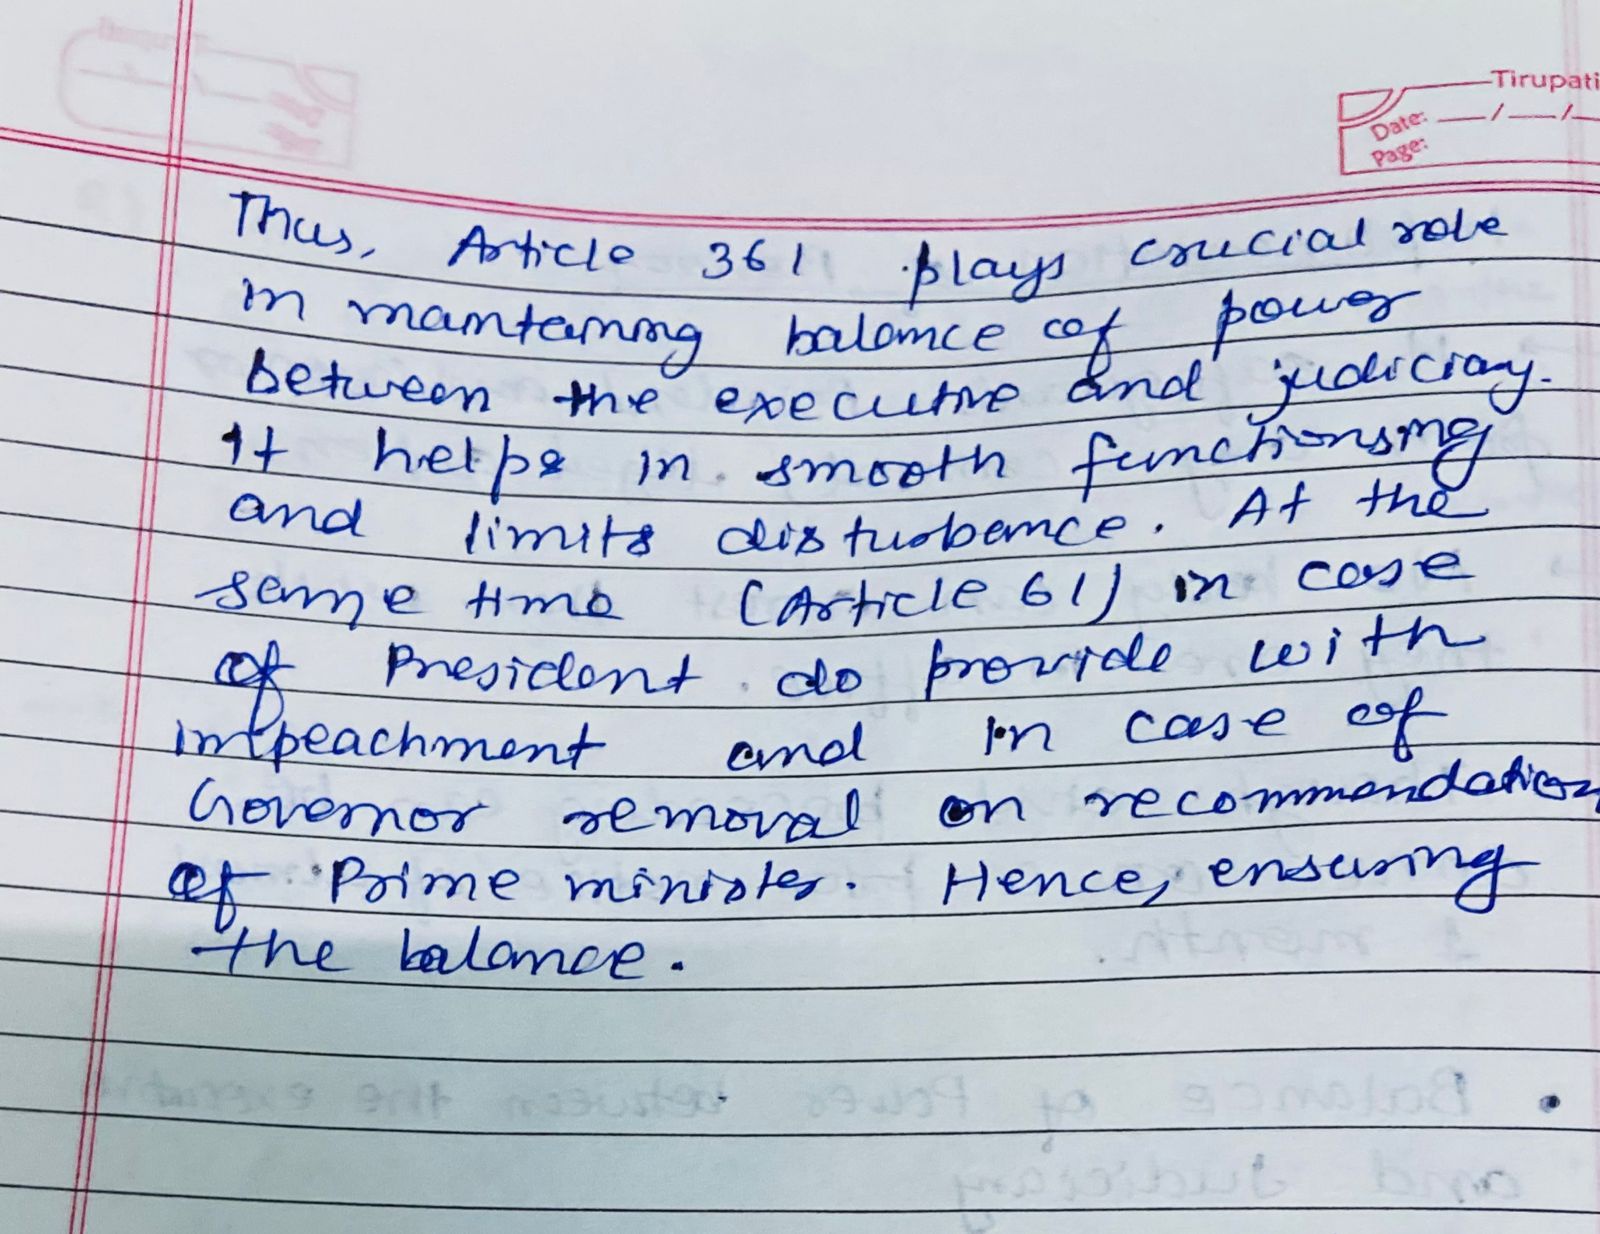 Tirupati
Date: __/__/__
Page:
Thus, Article 361 plays crucial role
in maintaining balance of power
between the executive and judiciary.
It helps in smooth functionsing
and limits disturbance. At the
same time (Article 61) in case
of President do provide with
impeachment and in case of
Governor removal on recommendation
of Prime minister. Hence, ensuring
the balance.
Balance of Power between the executive
and Judiciary